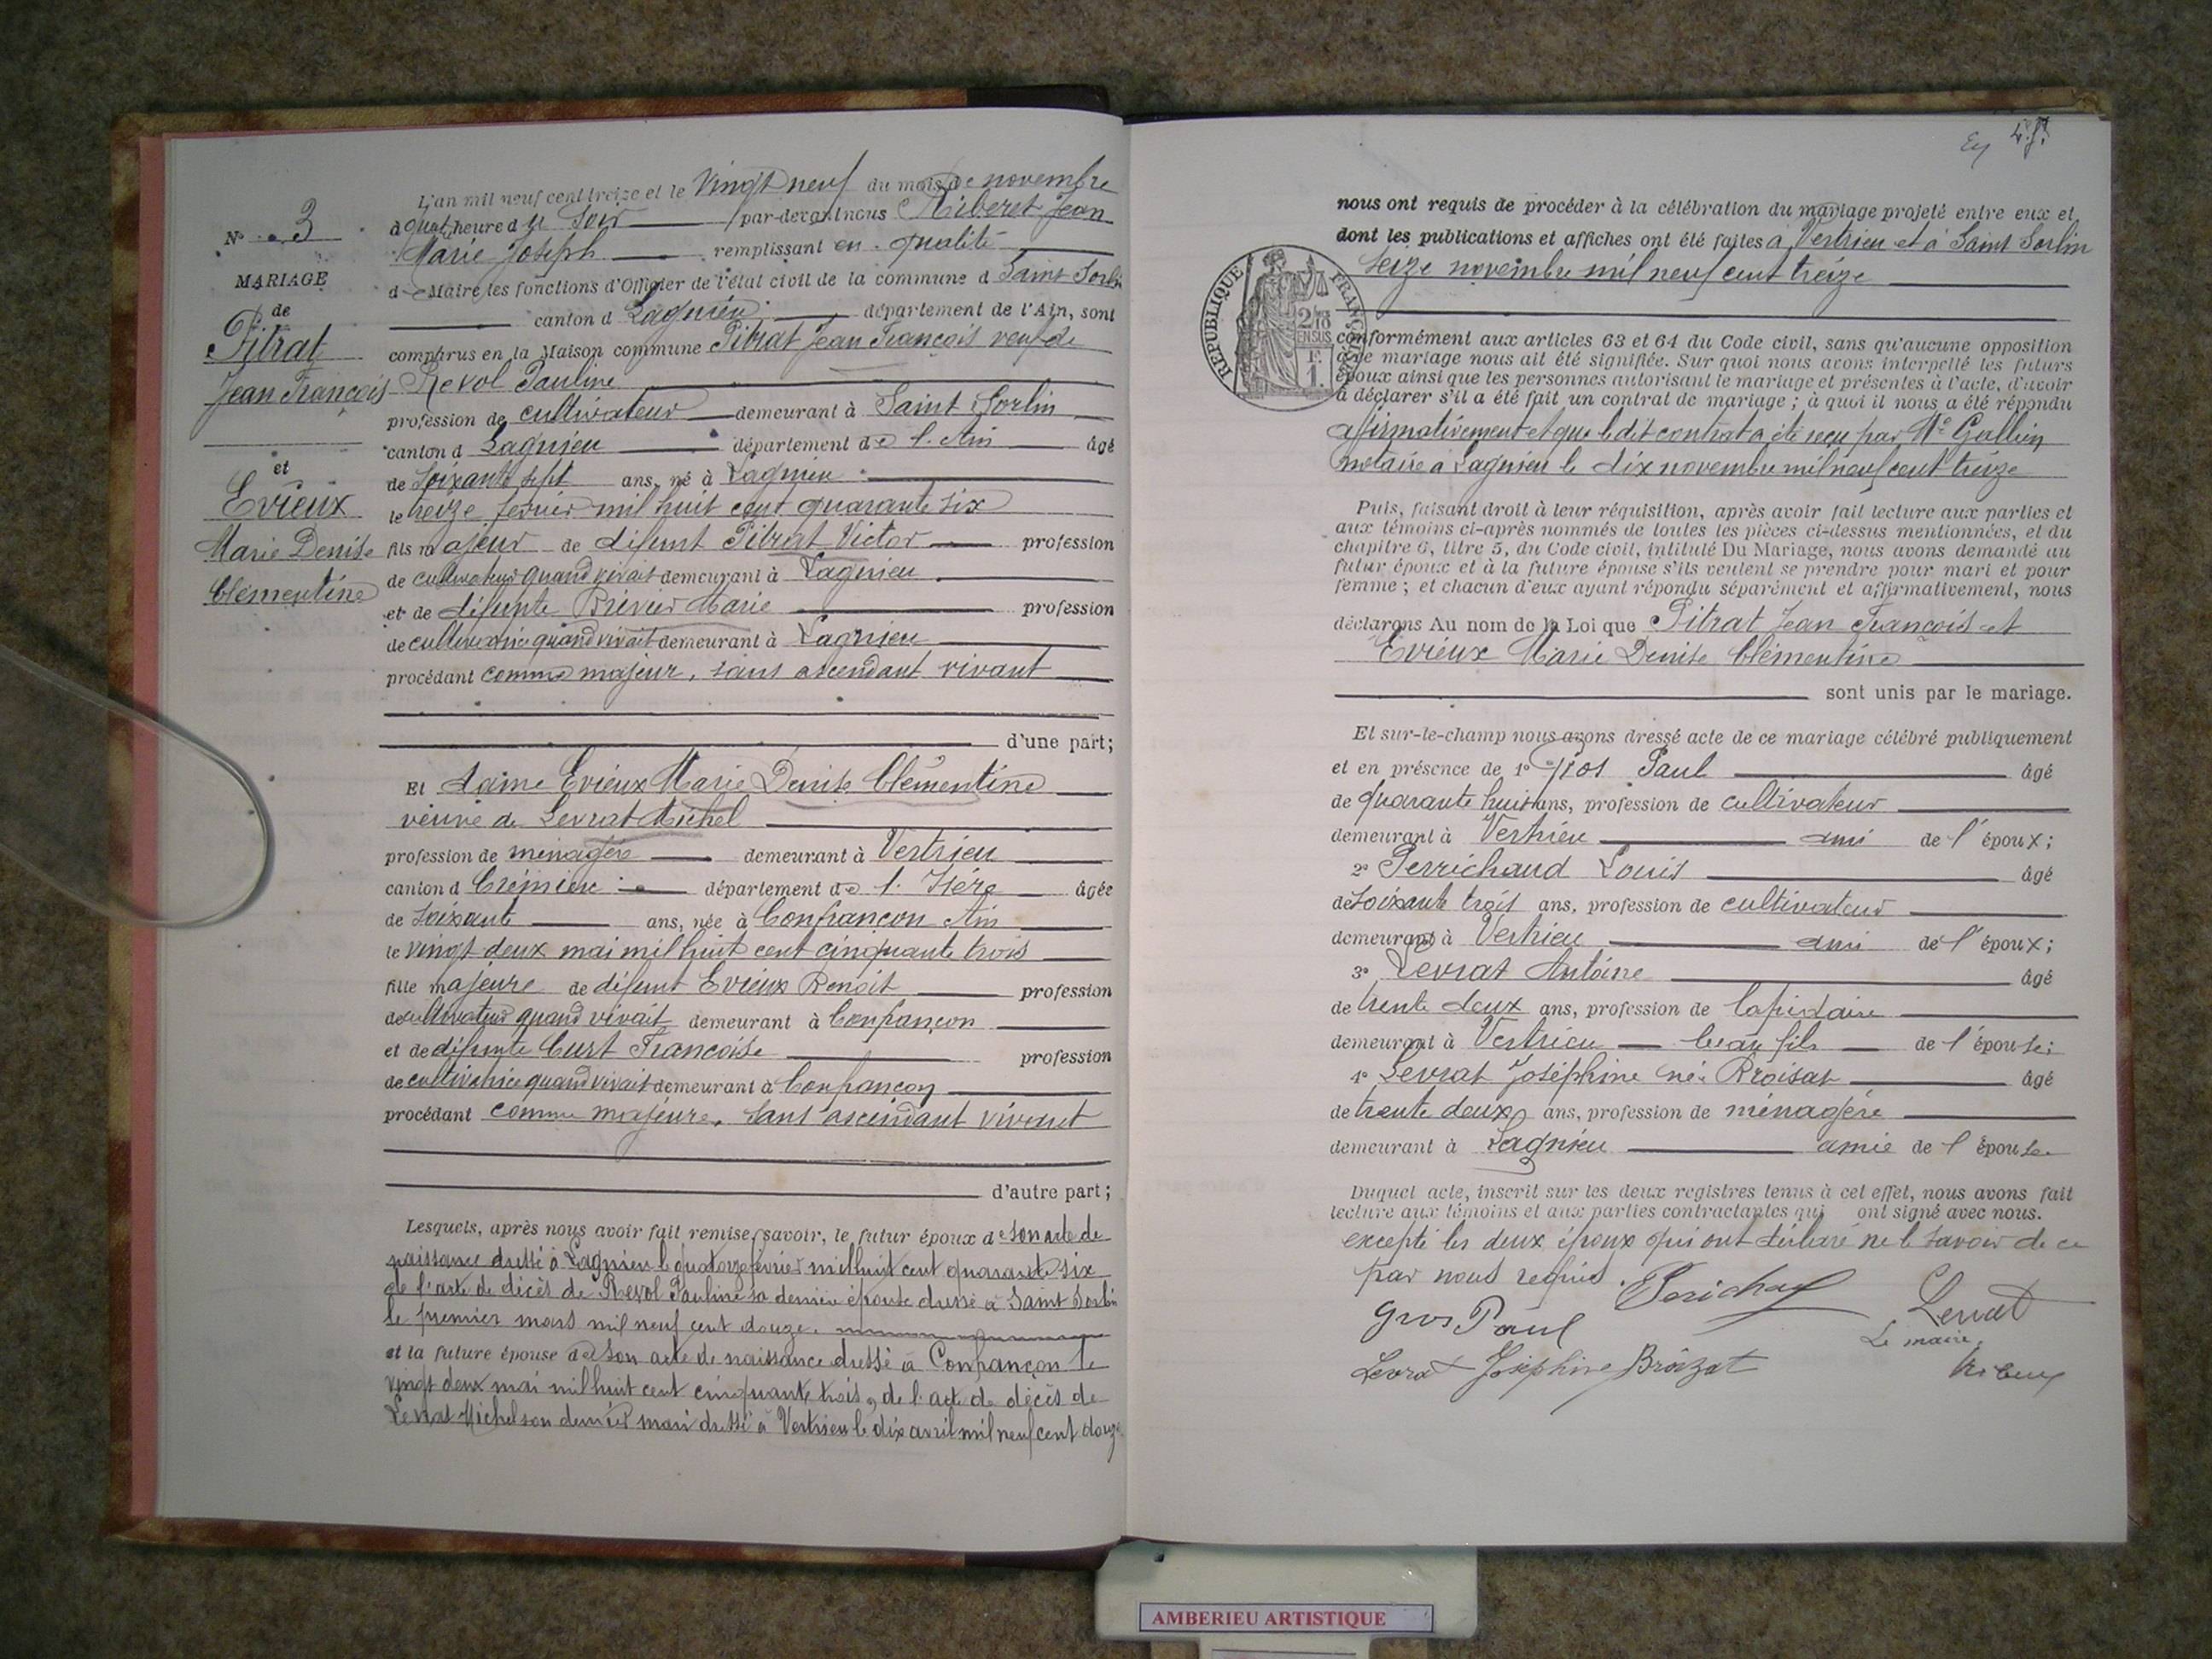 N° 3
MARIAGE
de
Pitrat
Jean François
et
Evieux
Marie Denise
Clémentine
L'an mil neuf cent treize et le Vingt neuf du mois de novembre
à quatre heure du soir par-devant nous Riberet Jean
Marie Joseph remplissant en qualité
de Maire les fonctions d'Officier de l'état civil de la commune d Saint Sorlin
canton d Lagnieu département de l'Ain, sont
comparus en la Maison commune Pitrat Jean François veuf de
Revol Pauline
profession de cultivateur demeurant à Saint Sorlin
canton d Lagnieu département de l'Ain âgé
de soixante sept ans, né à Lagnieu
le treize fevrier mil huit cent quarante six
fils majeur de défunt Pitrat Victor profession
de cultivateur quand vivait demeurant à Lagnieu
et de défunte Brévier Marie profession
de cultivatrice quand vivait demeurant à Lagnieu
procédant comme majeur, sans ascendant vivant
d'une part;
Et dame Evieux Marie Denise Clémentine
veuve de Levrat Michel
profession de ménagère demeurant à Vertrieu
canton d Crémieu département de l'Isére âgée
de soixante ans, née à Confrançon Ain
le vingt deux mai mil huit cent cinquante trois
fille majeure de défunt Evieux Benoit profession
de cultivateur quand vivait demeurant à Confrançon
et de défunte Curt Françoise profession
de cultivatrice quand vivait demeurant à Confrançon
procédant comme majeure, sans ascendant vivant
d'autre part;
Lesquels, après nous avoir fait remise, savoir, le futur époux de son acte de
naissance dressé à Lagnieu le quatorze février mil huit cent quarante six
de l'acte de décès de Revol Pauline sa dernière épouse dressé à Saint Sorlin
le premier mars mil neuf cent douze.
et la future épouse de son acte de naissance dressé à Confrançon le
vingt deux mai mil huit cent cinquante trois, de l'acte de décès de
Levrat Michel son dernier mari dressé à Vertrieu le dix avril mil neuf cent douze
nous ont requis de procéder à la célébration du mariage projeté entre eux et
dont les publications et affiches ont été faites à Vertrieu et à Saint Sorlin
seize novembre mil neuf cent treize
RÉPUBLIQUE FRANÇAISE
2/10 EN SUS
F. 1.
conformément aux articles 63 et 64 du Code civil, sans qu'aucune opposition
à ce mariage nous ait été signifiée. Sur quoi nous avons interpellé les futurs
époux ainsi que les personnes autorisant le mariage et présentes à l'acte, d'avoir
à déclarer s'il a été fait un contrat de mariage; à quoi il nous a été répondu
afirmativement et que le dit contrat a été reçu par Me Gallien
notaire à Lagnieu le dix novembre mil neuf cent treize
Puis, faisant droit à leur réquisition, après avoir fait lecture aux parties et
aux témoins ci-après nommés de toutes les pièces ci-dessus mentionnées, et du
chapitre 6, titre 5, du Code civil, intitulé Du Mariage, nous avons demandé au
futur époux et à la future épouse s'ils veulent se prendre pour mari et pour
femme; et chacun d'eux ayant répondu séparément et affirmativement, nous
déclarons Au nom de la Loi que Pitrat Jean François et
Evieux Marie Denise Clémentine
sont unis par le mariage.
Et sur-le-champ nous avons dressé acte de ce mariage célébré publiquement
et en présence de 1° Gros Paul âgé
de quarante huit ans, profession de cultivateur
demeurant à Vertrieu ami de l'époux;
2° Perrichaud Louis âgé
de soixante trois ans, profession de cultivateur
demeurant à Vertrieu ami de l'époux;
3° Levrat Antoine âgé
de trente deux ans, profession de lapidaire
demeurant à Vertrieu beau fils de l'épouse;
4° Levrat Joséphine née Broisat âgé
de trente deux ans, profession de ménagère
demeurant à Lagnieu amie de l'épouse
Duquel acte, inscrit sur les deux registres tenus à cet effet, nous avons fait
lecture aux témoins et aux parties contractantes qui ont signé avec nous.
excepté les deux époux qui ont déclaré ne le savoir de ce
par nous requis.
Gros Paul
Levrat
Le maire,
Levrat Joséphine Broizat
AMBERIEU ARTISTIQUE